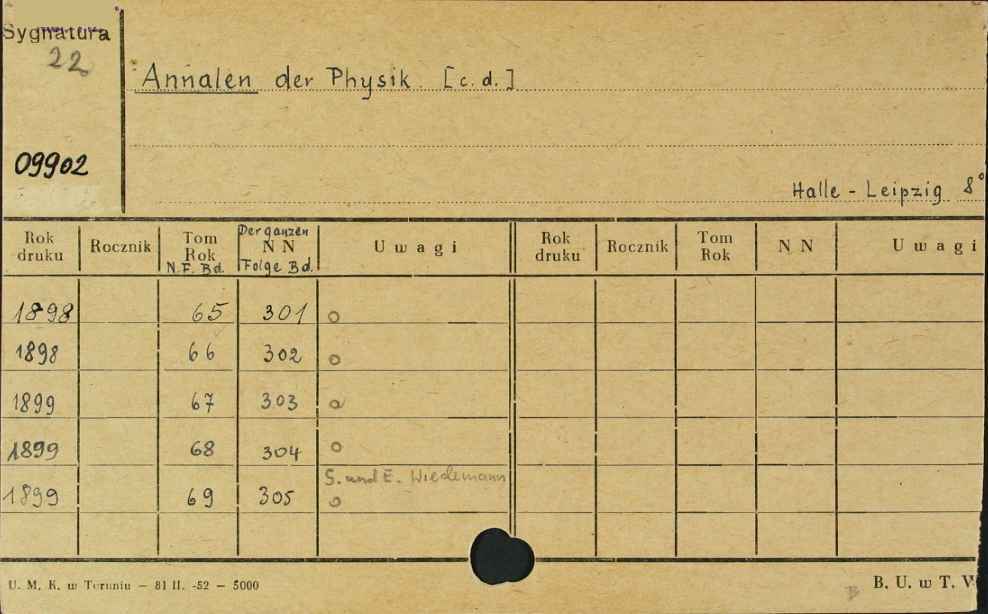 Sygnatura
22
Annalen der Physik. [c.d.]
09902
Halle - Leipzig 8°
Rok druku Rocznik Tom Rok N.F. Bd. Der ganzen NN Folge Bd. Uwagi Rok druku Rocznik Tom Rok NN Uwagi
1898 65 301 o
1898 66 302 o
1899 67 303 o
1899 68 304 o
S. und E. Wiedemann
1899 69 305 o
U. M. K. w Toruniu — 81 II. -52 — 5000
B. U. w T.
B